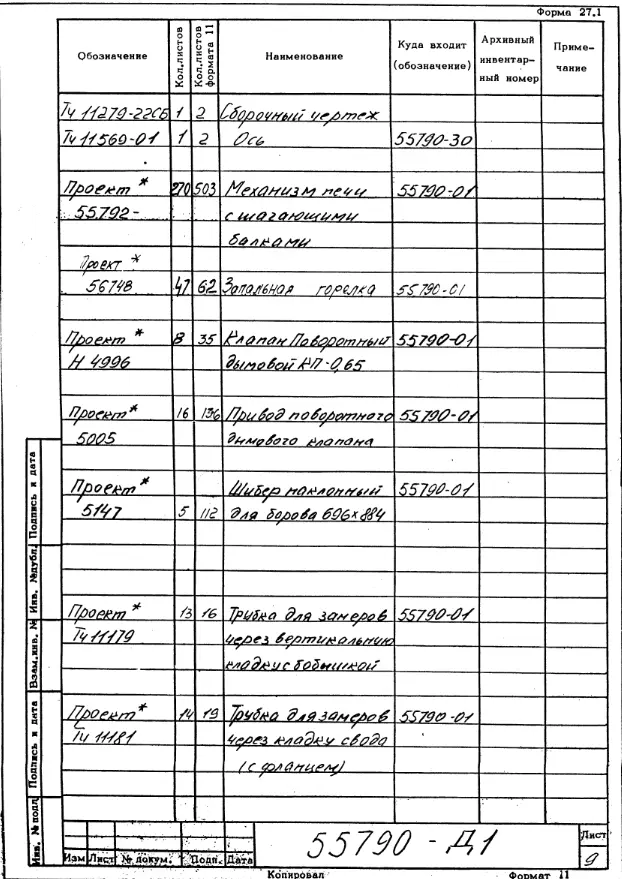 Форма 27.1
Обозначение Кол.листов Кол.листов формата 11 Наименование Куда входит (обозначение) Архивный инвентар- ный номер Приме- чание
Тч 11279-22СБ 1 2 Сборочный чертеж
Тч 11569-01 1 2 Ось 55790-30
Проект * 270 503 Механизм печи 55790-01
55792- с шагающими
балками
Проект *
56748 47 62 Запальная горелка 55790-01
Проект * 8 35 Клапан Поворотный 55790-01
Н 4996 дымовой КП-0,65
Проект * 16 136 Привод поворотного 55790-01
5005 дымового клапана
Проект * Шибер наклонный 55790-01
5147 5 112 для борова 696×884
Проект * 13 16 Трубка для замеров 55790-01
Тч 11179 через вертикальную
кладку с бобышкой
Проект * 14 19 Трубка для замеров 55790-01
Тч 11181 через кладку свода
(с фланцем)
Инв. № подл. Подпись и дата Взам.инв. № Инв. №дубл. Подпись и дата
55790 - Д1
Лист
9
Изм Лист № докум. Подп. Дата
Копировал Формат 11